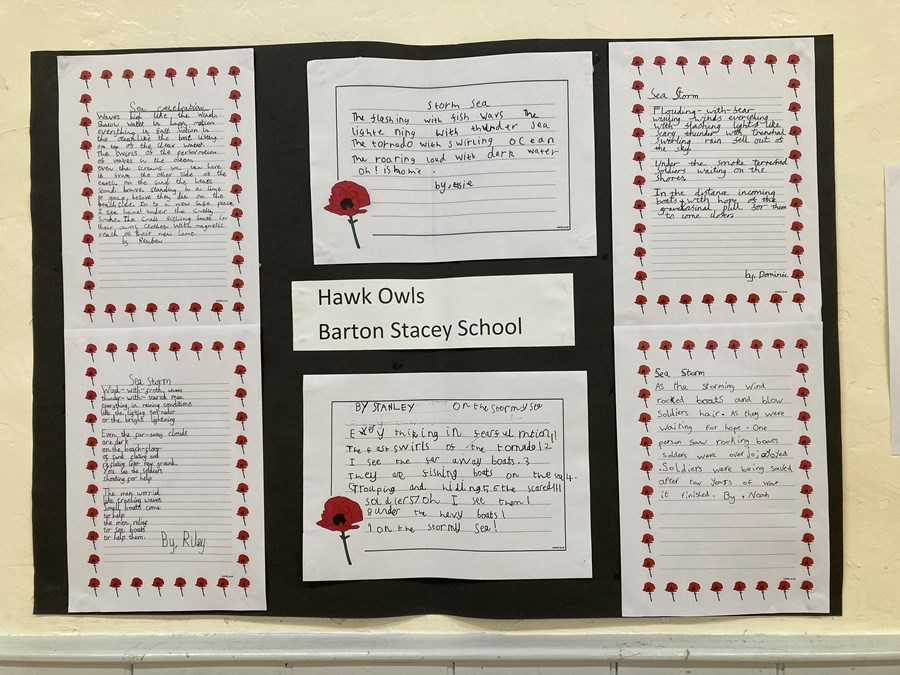 Sea celebration
Waves high like the winds
water in happy motion
everything is fast motion in
the the boat
on top of the clear waves.
The swirls of the performation
of waves in the ocean
even the crowds you can here
is from the other side of the
earth on the sand the
brave, standing in a line
to before they die on the
beachside. In to a new safe place
I see home! under the smelly
Smoke. The small fishing boats in
their clothes. With magnetic
reach of their new home
by Reuben
Storm Sea
The flashing with fish wavs The
lighte ning with thunder sea
The tornado with swirling ocean
The roaring loud with dark water
oh! is home.
by, essie
Sea Storm
Flouding-with-fear
winds everything
with flashing lights like
scary thunder with
Swirling rain fell out of
the sky
Under the smoke terrefied
Soldiers waiting on the
shores,
In the distance incoming
boats with hope of the
pull for them
to come closer
by, Dominic
Hawk Owls
Barton Stacey School
Sea Storm
Wind-with-froth, waves
thunder-with-scared men
everything in raining conditions
like the lifting tornado
or the bright lightning
Even the far-away clouds
are dark
on the beach
of sand

You see the soldiers
shouting for help
The men worried
like crashing waves
Small boats come
to help
the men
to see boats
to help them.
By, Riley
BY STANLEY On the stormy sea
Every thinking in fearful motion!1
The fast swirls of the tornado!2
I see the far away boats.3
They are fishing boats on the sea!4.
Grouping and killing5 the scared!!!
soldiers!7oh I see them!
8under the hevy boats!
9 on the stormy sea!
Sea Storm
As the storming wind
rocked boats and blow
Soldiers hair. As they were
waiting for hope. One
person saw rocking boats
Solders were over
Soldiers were being saved
after few years of war
it finished. By, Noah